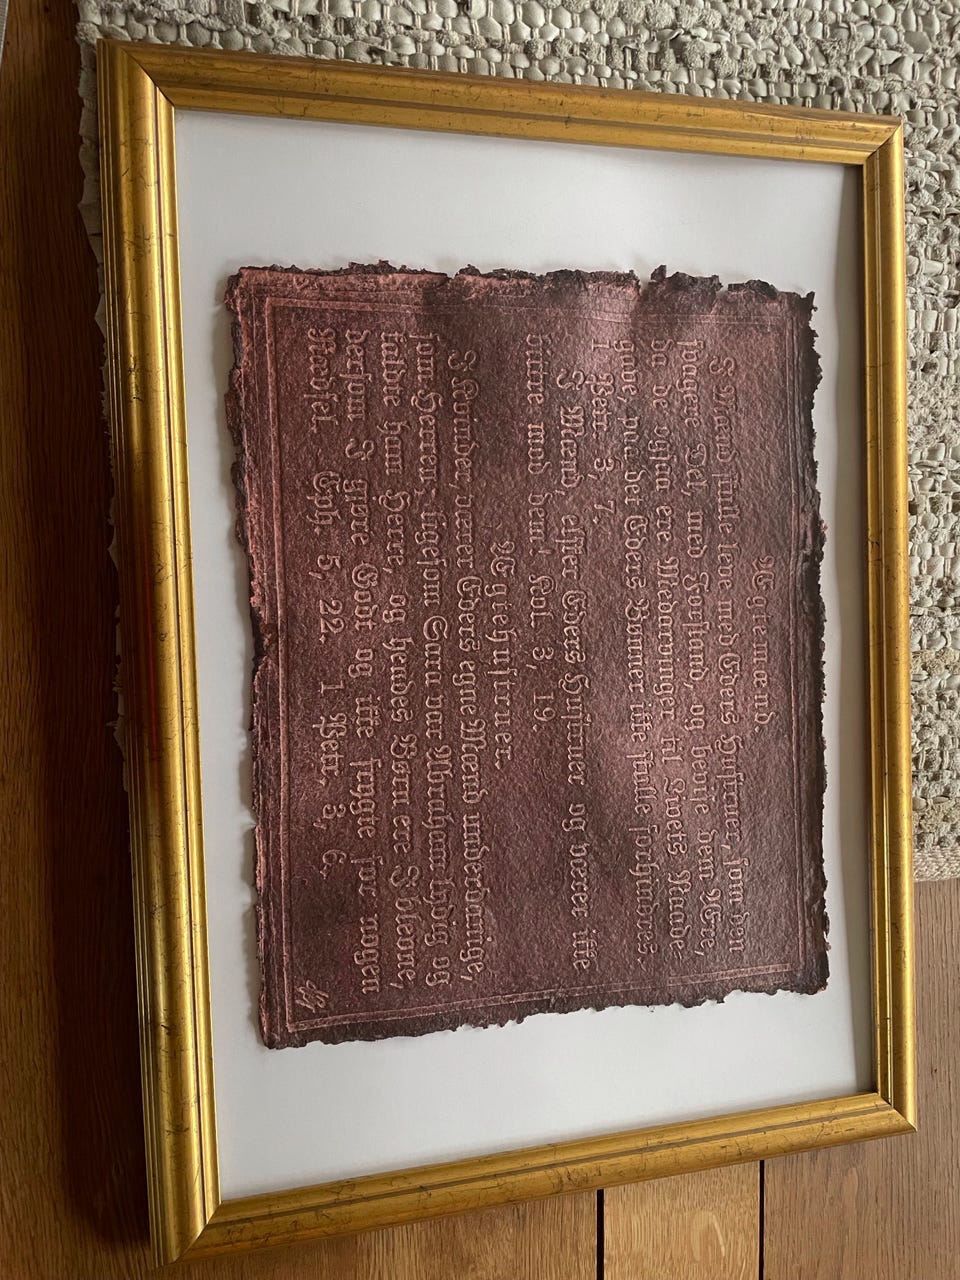 Ægtemænd.
I Mænd skulle leve med Eders Hustruer, som den
svagere Deel, med Forstand, og bevise dem Ære,
da de ogsaa ere Medarvinger til Livets Naade
gave, paa det Eders Bønner ikke skulle forhindres.
1 Petr. 3, 7.
I Mænd, elsker Eders Hustruer og værer ikke
bittre mod dem! Kol. 3, 19.
Ægtehustruer.
I Kvinder, værer Eders egne Mænd underdanige,
som Herren, ligesom Sara var Abraham lydig og
kaldte ham Herre, og hendes Børn ere I blevne,
dersom I gjøre Godt og ikke frygte for nogen
Rædsel. Eph. 5, 22. 1 Petr. 3, 6.